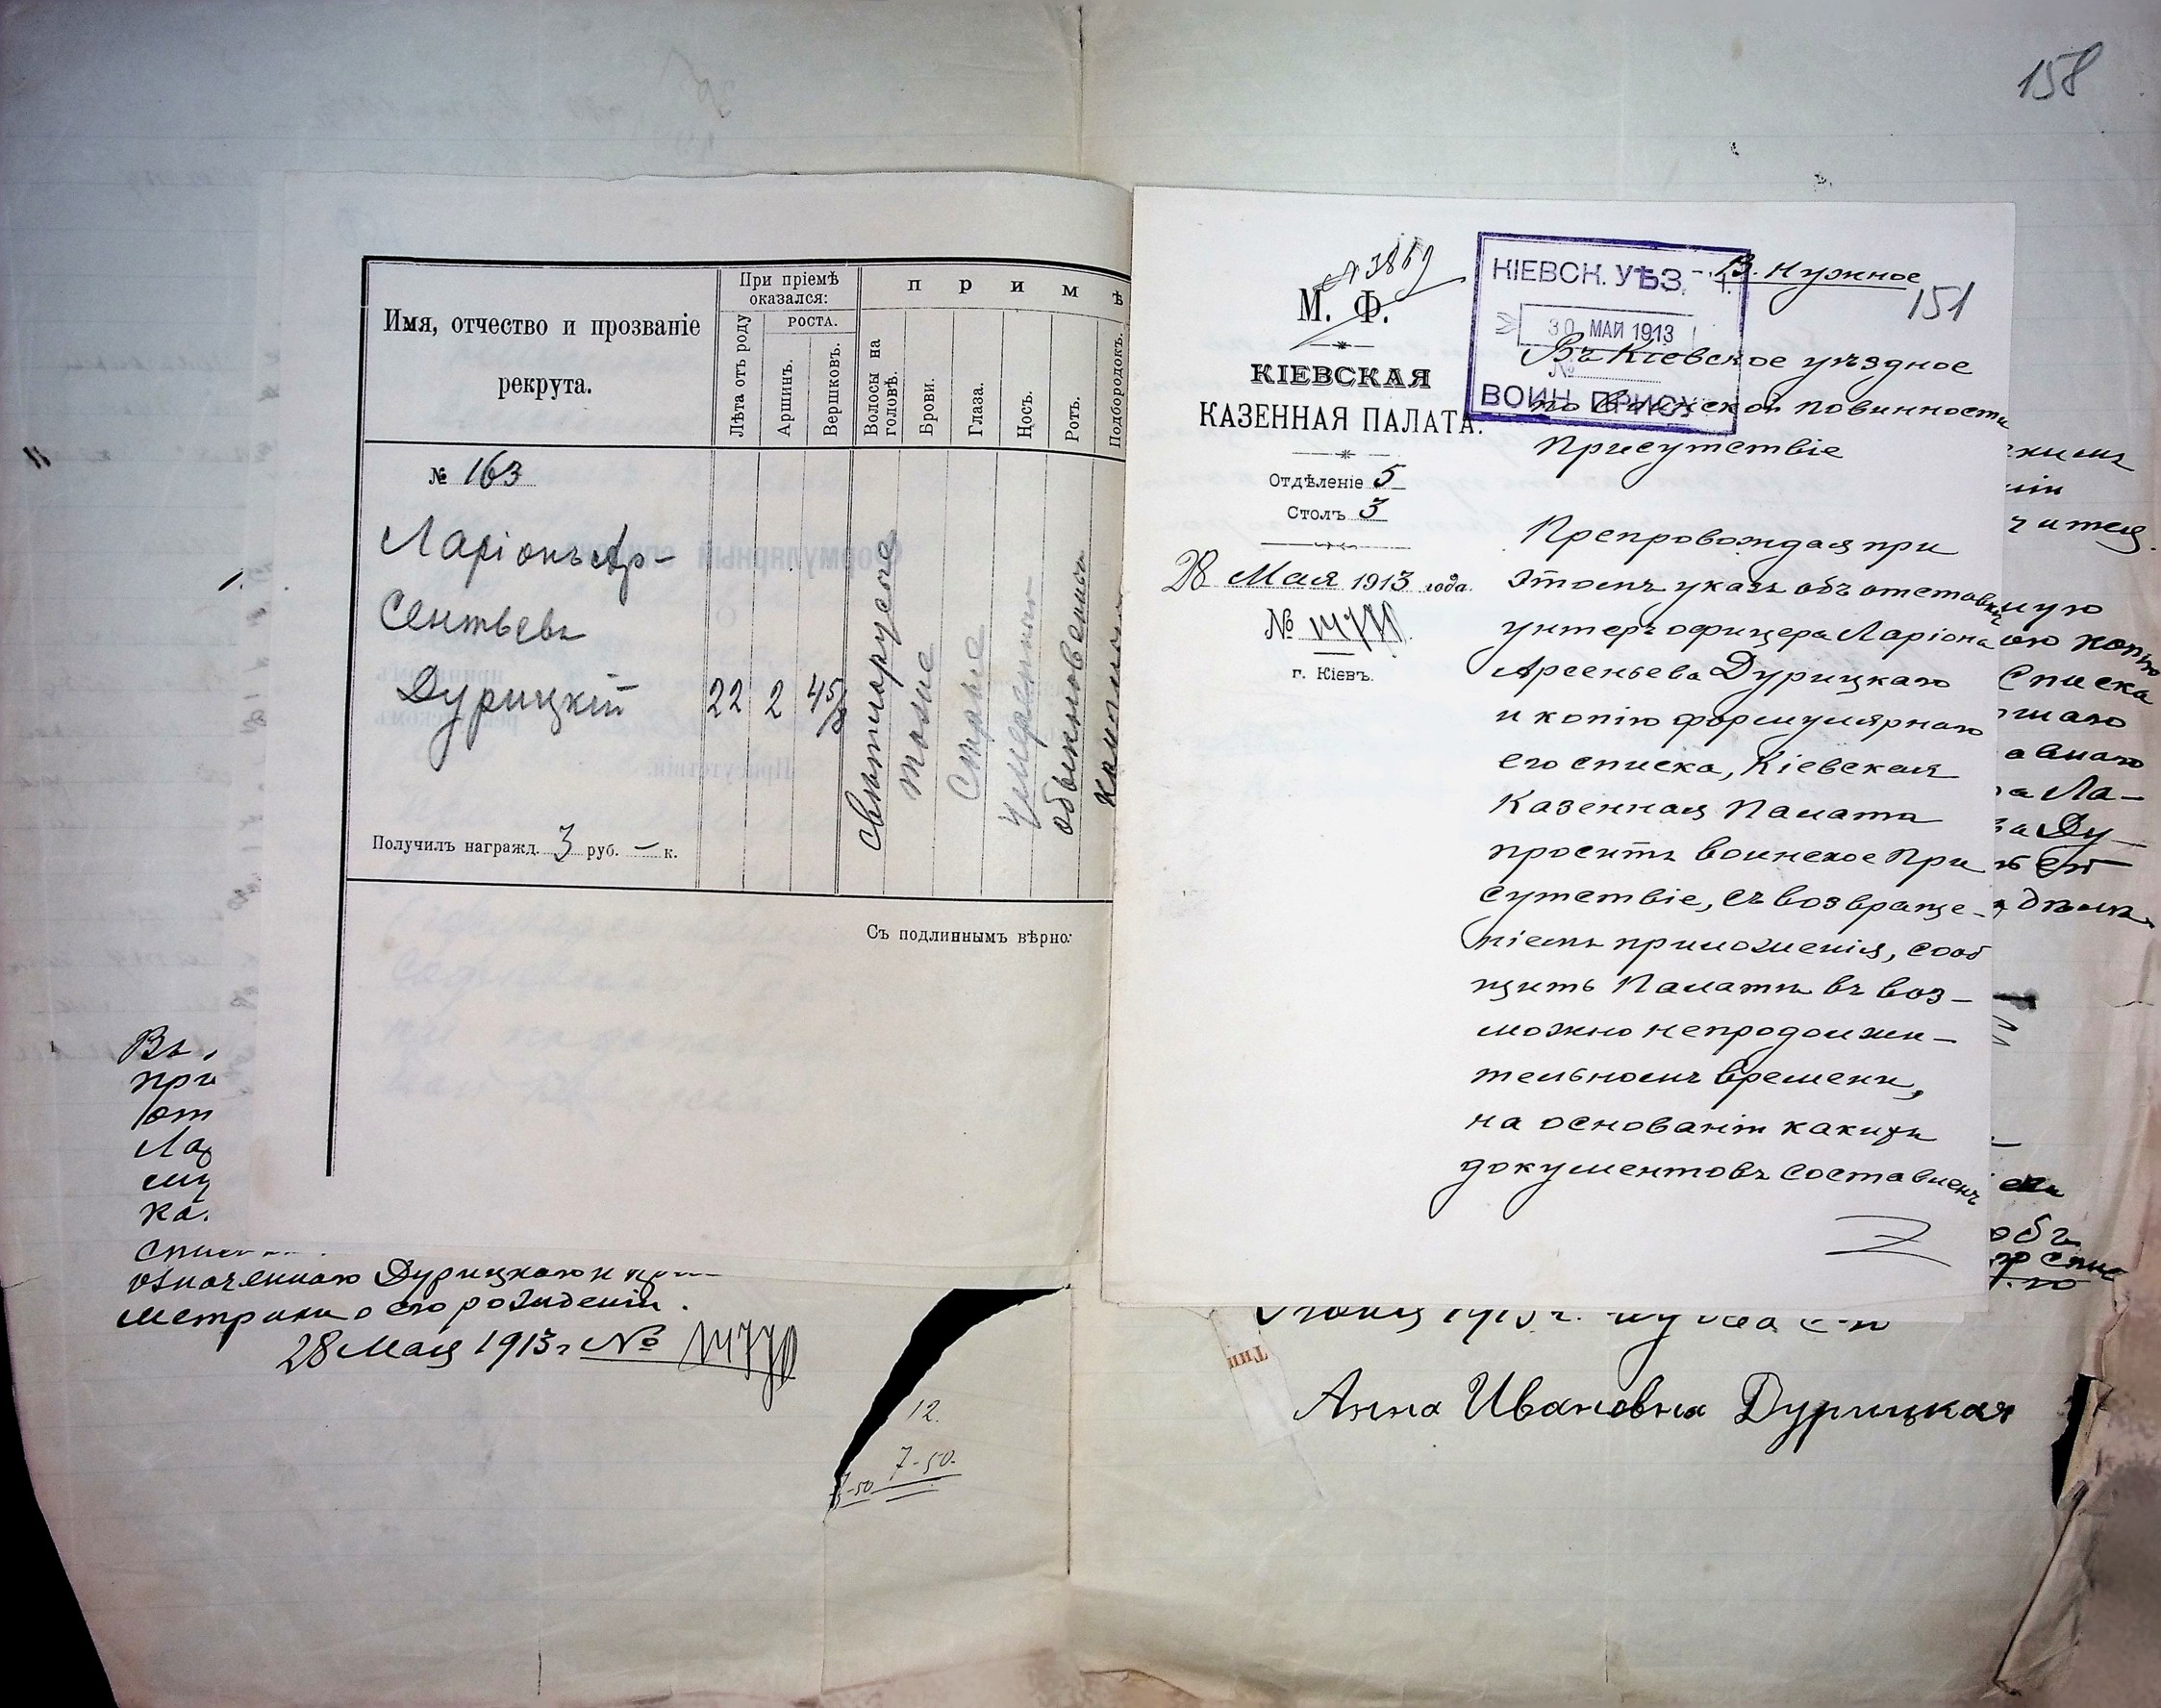 158
Имя, отчество и прозваніе
рекрута.
При пріемѣ
оказался:
Лѣта отъ роду
РОСТА.
Аршинъ.
Вершковъ.
п р и м ѣ
Волосы на
головѣ.
Брови.
Глаза.
Носъ.
Ротъ.
Подбородокъ.
№ 163
Ларіонъ Ар-
сентьевъ
Дурицкій
22
2
4 5/8
свѣтлорусые
тоже
сѣрые
умеренный
обыкновенный
Получилъ награжд. 3 руб. — к.
Съ подлиннымъ вѣрно:
№ 3869
М. Ф.
КІЕВСКАЯ
КАЗЕННАЯ ПАЛАТА.
Отдѣленіе 5
Столъ 3
28 Мая 1913 года.
№
г. Кіевъ.
КІЕВСК. УѢЗ.
30 МАЙ 1913
№
ВОИН. ПРИСУ
В. нужное
151
Въ Кіевское уѣздное
по воинской повинности
Присутствіе
Препровождая при
этомъ указъ объ отставкѣ
унтеръ офицера Ларіона
Арсеньева Дурицкаго
и копію формулярнаго
его списка, Кіевская
Казенная Палата
проситъ воинское При
сутствіе, съ возвраще-
ніемъ приложенія, сооб
щить Палатѣ въ воз-
можно непродолжи-
тельномъ времени,
на основаніи какихъ
документовъ составленъ
Въ
при
от
Ла
ка.
означеннаго Дурицкаго и
метрики о его рожденіи.
28 Мая 1913 г №
12.
7-50.
Списка
а Ла-
за Ду-
объ
1913 г.
Анна Ивановна Дурицкая
Тип